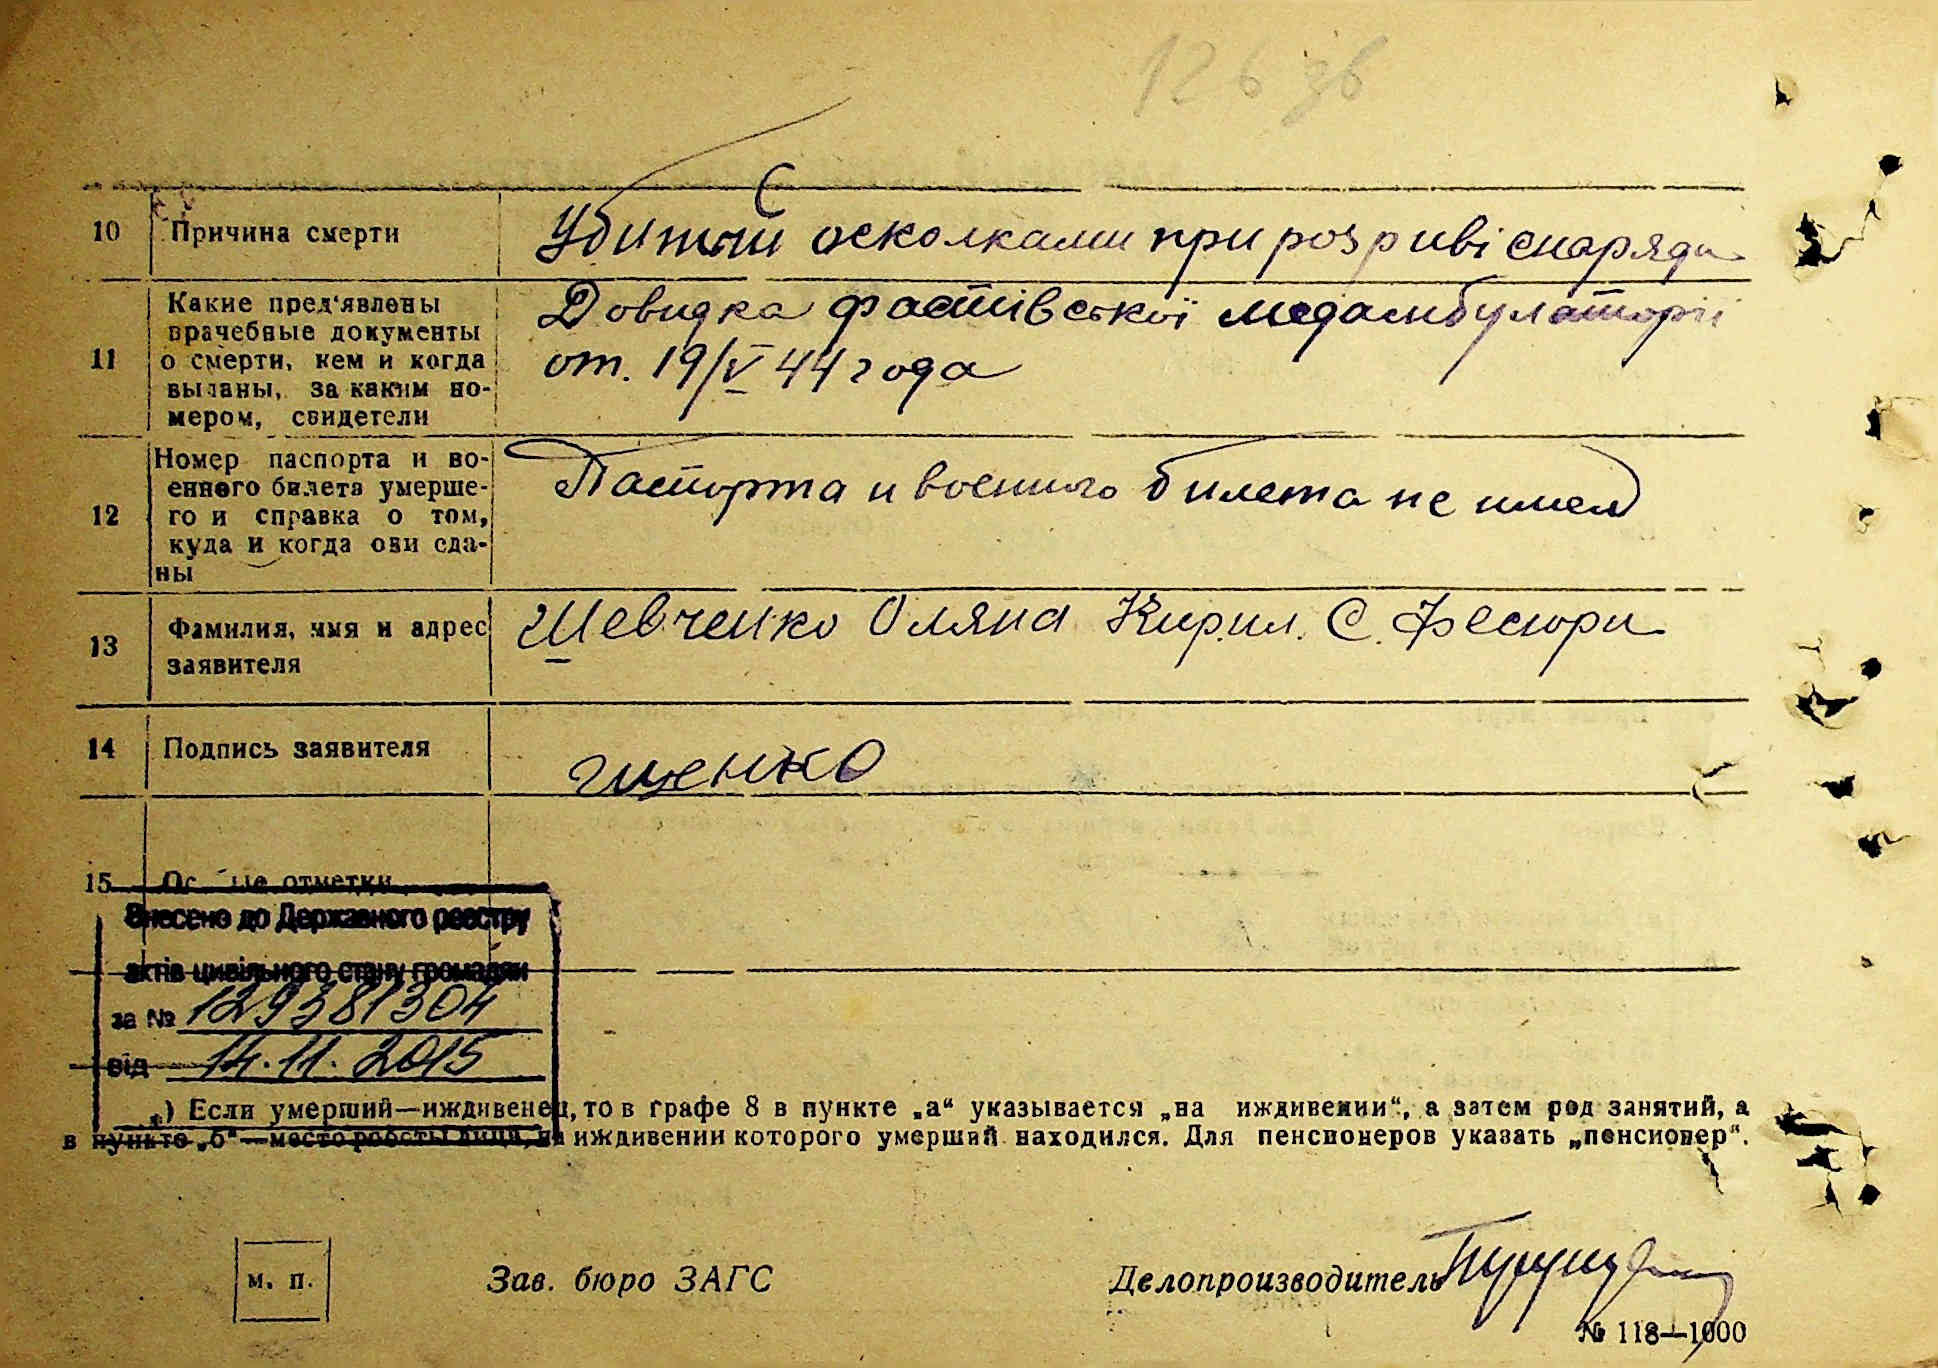 126 зв
10 Причина смерти Убитий осколками при розриві снаряда
11 Какие пред'явлены врачебные документы о смерти, кем и когда выданы, за каким номером, свидетели
Довидка фастівської медамбулаторії
от. 19/V 44 года
12 Номер паспорта и во-
енного билета умерше-
го и справка о том,
куда и когда они сда-
ны
Паспорта и военного билета не имел
13 Фамилия, имя и адрес
заявителя
Шевченко Оляна Кирил. С. Фесюри
14 Подпись заявителя
15 Ос ые отметки
Внесено до Державного реєстру
актів цивільного стану громадян
за № 129381304
від 14.11.2015
*) Если умерший—иждивенец, то в графе 8 в пункте „а“ указывается „на иждивении“, а затем род занятий, а
в пункте „б“—место работы лица, на иждивении которого умерший находился. Для пенсионеров указать „пенсионер“.
м. п.
Зав. бюро ЗАГС
Делопроизводитель
№ 118—1000